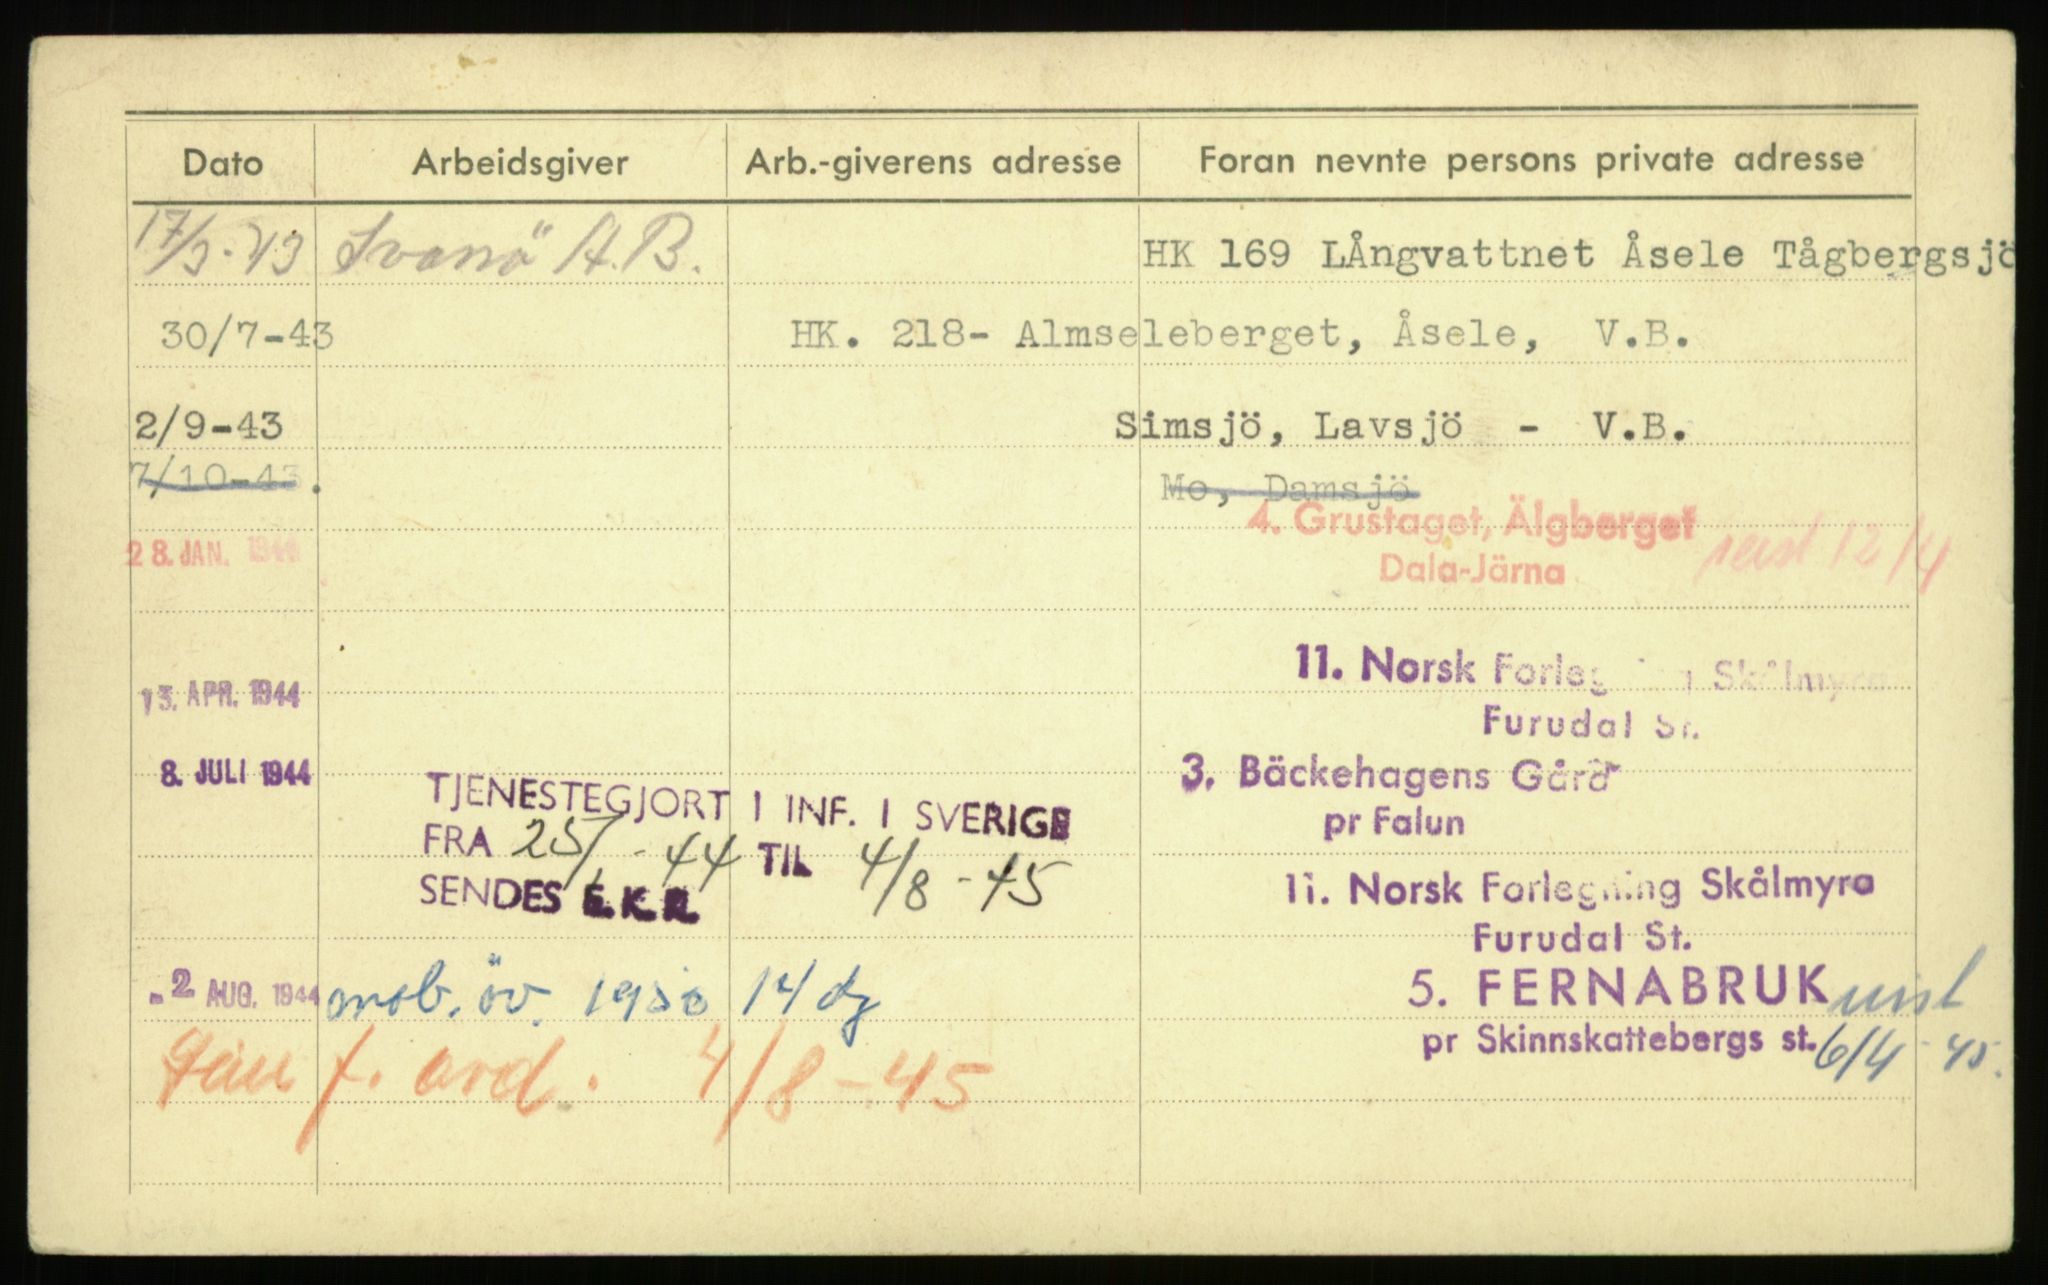 Dato Arbeidsgiver Arb.-giverens adresse Foran nevnte persons private adresse
17/3-43 Svanö A.B. HK 169 LÅngvattnet Åsele Tågbergsjö
30/7-43 HK. 218- Almseleberget, Åsele, V.B.
2/9-43 Simsjö, Lavsjö - V.B.
7/10-43. Mo, Damsjö
4. Grustaget, Älgberget
28. JAN. 1944 Dala-Järna reist 12/4
11. Norsk Forlegning Skålmyra
13. APR. 1944 Furudal St.
8. JULI 1944 3. Bäckehagens Gård
TJENESTEGJORT I INF. I SVERIGE
pr Falun
FRA 25/ -44 TIL 4/8-45
SENDES E.K.R.
11. Norsk Forlegning Skålmyra
Furudal St.
-2 AUG. 1944 mob. öv. 1950 14 dg 5. FERNABRUK reist
pr Skinnskattebergs st. 6/4-45.
f. ord. 4/8-45